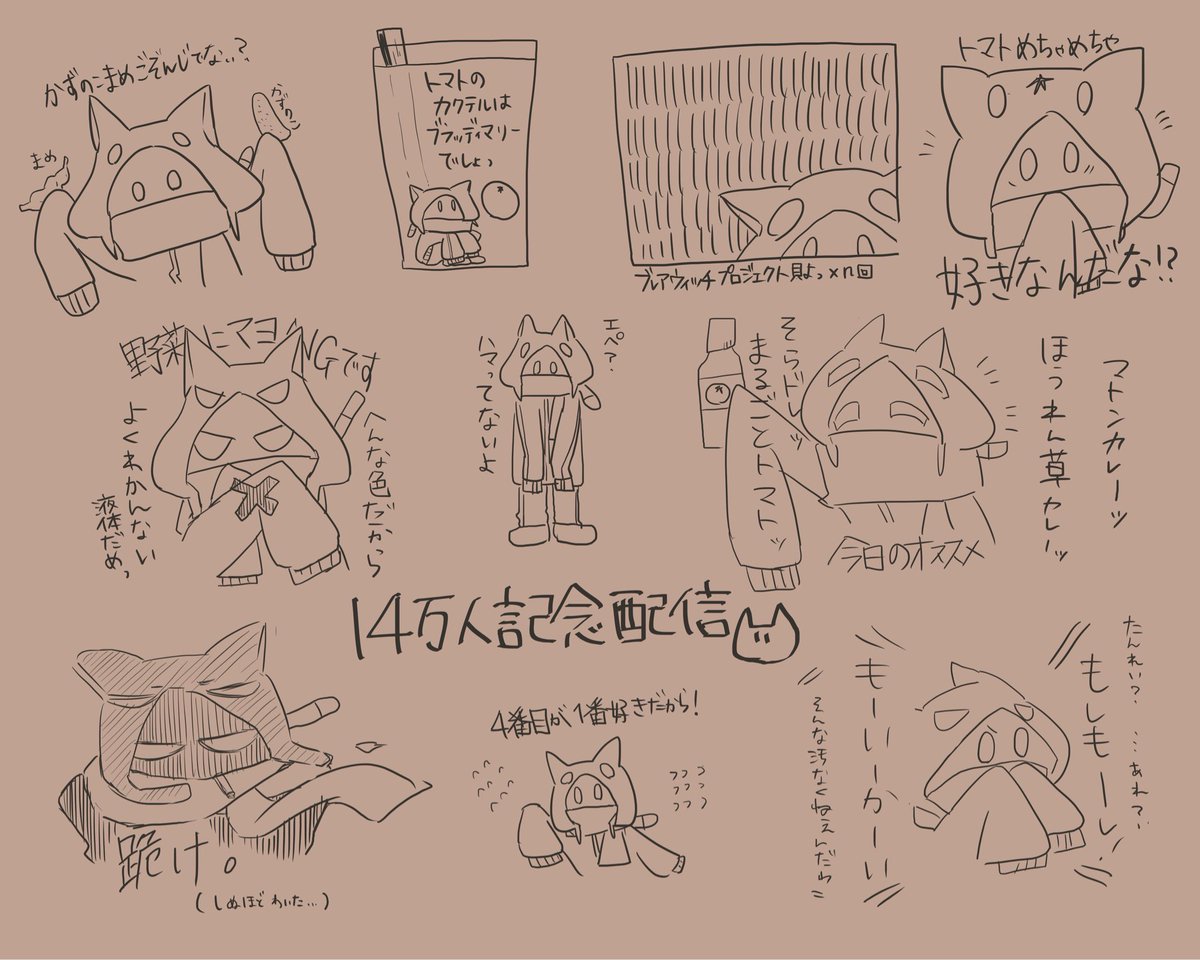 かずのこまめごぞんじでない..?
まめ
かずのこ
トマトの
カクテルは
ブラッディマリー
でしょっ
ブレアウィッチプロジェクト見よっ×n回
トマトめちゃめちゃ
好きなんだな!?
野菜にマヨNGです
よくわかんない
液体だめっ
へんな色だから
エペ?
ハマってないよ
そらドレッ
まるごとトマトッ
マトンカレーッ
ほうれん草カレーッ
今日のオススメ
14万人記念配信
跪け。
(しぬほどわいた…)
4番目が1番好きだから!
フフフフフフフフ
たんれい? …あれ?
もしもーし
もーいーかーい
そんな汚なくねぇんだわ